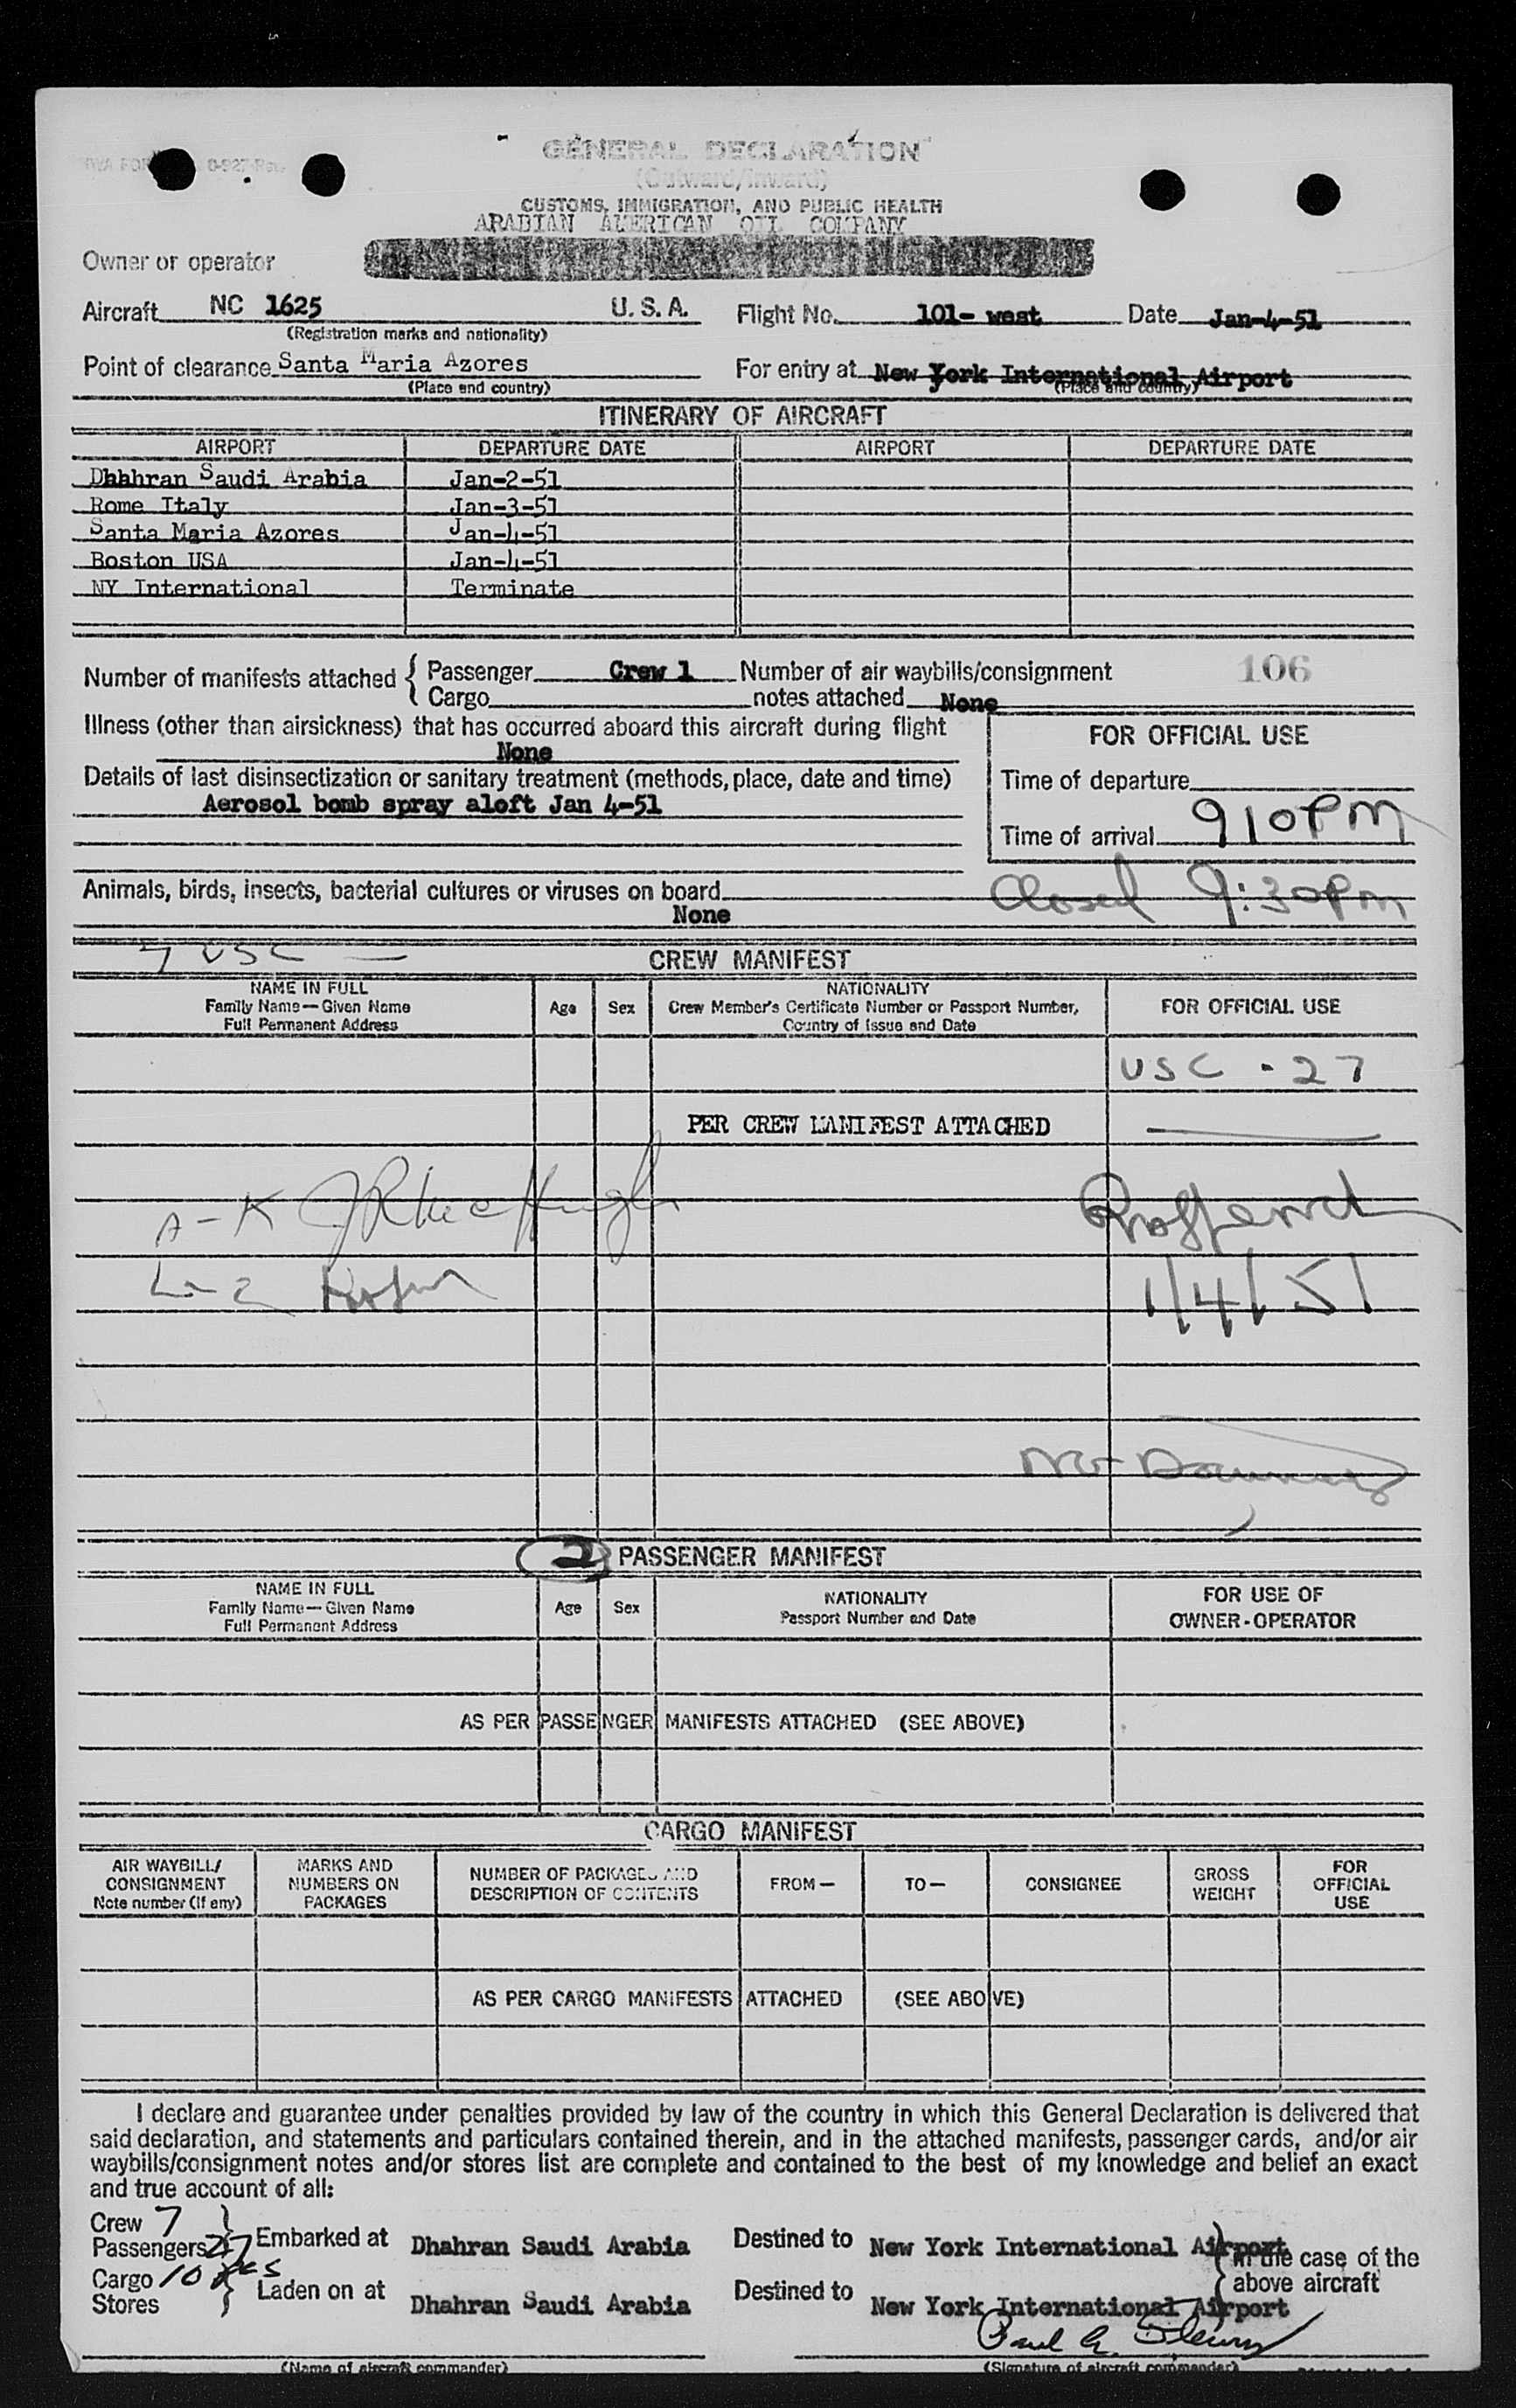 GENERAL DECLARATION
(Outward/Inward)
CUSTOMS, IMMIGRATION, AND PUBLIC HEALTH
ARABIAN AMERICAN OIL COMPANY
Owner or operator
Aircraft NC 1625 U. S. A. Flight No. 101- west Date Jan-4-51
(Registration marks and nationality)
Point of clearance Santa Maria Azores For entry at New York International Airport
(Place and country) (Place and country)
ITINERARY OF AIRCRAFT
AIRPORT DEPARTURE DATE AIRPORT DEPARTURE DATE
Dhahran Saudi Arabia Jan-2-51
Rome Italy Jan-3-51
Santa Maria Azores Jan-4-51
Boston USA Jan-4-51
NY International Terminate
Number of manifests attached { Passenger Crew 1 Number of air waybills/consignment 106
Cargo notes attached None
Illness (other than airsickness) that has occurred aboard this aircraft during flight
None
FOR OFFICIAL USE
Details of last disinsectization or sanitary treatment (methods, place, date and time)
Time of departure
Aerosol bomb spray aloft Jan 4-51
Time of arrival 910PM
Animals, birds, insects, bacterial cultures or viruses on board Closed 9:30Pm
None
7 USC — CREW MANIFEST
NAME IN FULL
Family Name—Given Name
Full Permanent Address
Age Sex
NATIONALITY
Crew Member's Certificate Number or Passport Number,
Country of Issue and Date
FOR OFFICIAL USE
USC - 27
PER CREW MANIFEST ATTACHED
A-K
1/4/51
2 PASSENGER MANIFEST
NAME IN FULL
Family Name—Given Name
Full Permanent Address
Age Sex
NATIONALITY
Passport Number and Date
FOR USE OF
OWNER-OPERATOR
AS PER PASSENGER MANIFESTS ATTACHED (SEE ABOVE)
CARGO MANIFEST
AIR WAYBILL/
CONSIGNMENT
Note number (if any)
MARKS AND
NUMBERS ON
PACKAGES
NUMBER OF PACKAGES AND
DESCRIPTION OF CONTENTS
FROM— TO— CONSIGNEE
GROSS
WEIGHT
FOR
OFFICIAL
USE
AS PER CARGO MANIFESTS ATTACHED (SEE ABOVE)
I declare and guarantee under penalties provided by law of the country in which this General Declaration is delivered that
said declaration, and statements and particulars contained therein, and in the attached manifests, passenger cards, and/or air
waybills/consignment notes and/or stores list are complete and contained to the best of my knowledge and belief an exact
and true account of all:
Crew 7
Passengers 27 Embarked at Dhahran Saudi Arabia Destined to New York International Airport
in the case of the
Cargo 10 pcs
above aircraft
Stores Laden on at Dhahran Saudi Arabia Destined to New York International Airport
(Name of aircraft commander) (Signature of aircraft commander)